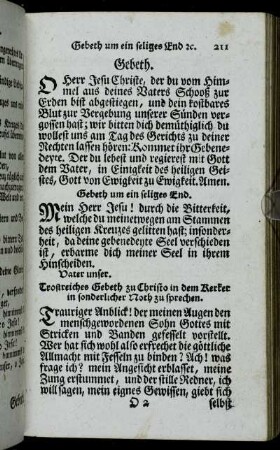 Gebeth um ein seliges End ꝛc. 211
Gebeth.
O Herr Jesu Christe, der du vom Him-
mel aus deines Vaters Schooß zur
Erden bist abgestiegen, und dein kostbares
Blut zur Vergebung unserer Sünden ver-
gossen hast; wir bitten dich demüthiglich du
wollest uns am Tag des Gerichts zu deiner
Rechten lassen hören: Kommet ihr Gebene-
deyte. Der du lebest und regierest mit Gott
dem Vater, in Einigkeit des heiligen Gei-
stes, Gott von Ewigkeit zu Ewigkeit. Amen.
Gebeth um ein seliges End.
Mein Herr Jesu! durch die Bitterkeit,
welche du meinetwegen am Stammen
des heiligen Kreuzes gelitten hast; insonder-
heit, da deine gebenedeyte Seel verschieden
ist, erbarme dich meiner Seel in ihrem
Hinscheiden.
Vater unser.
Trostreiches Gebeth zu Christo in dem Kerker
in sonderlicher Noth zu sprechen.
Trauriger Anblick! der meinen Augen den
menschgewordenen Sohn Gottes mit
Stricken und Banden gefesselt vorstellt.
Wer hat sich wohl also erfrechet die göttliche
Allmacht mit Fesseln zu binden? Ach! was
frage ich? mein Angesicht erblasset, meine
Zung erstummet, und der stille Redner, ich
will sagen, mein eignes Gewissen, giebt sich
O 2 selbst